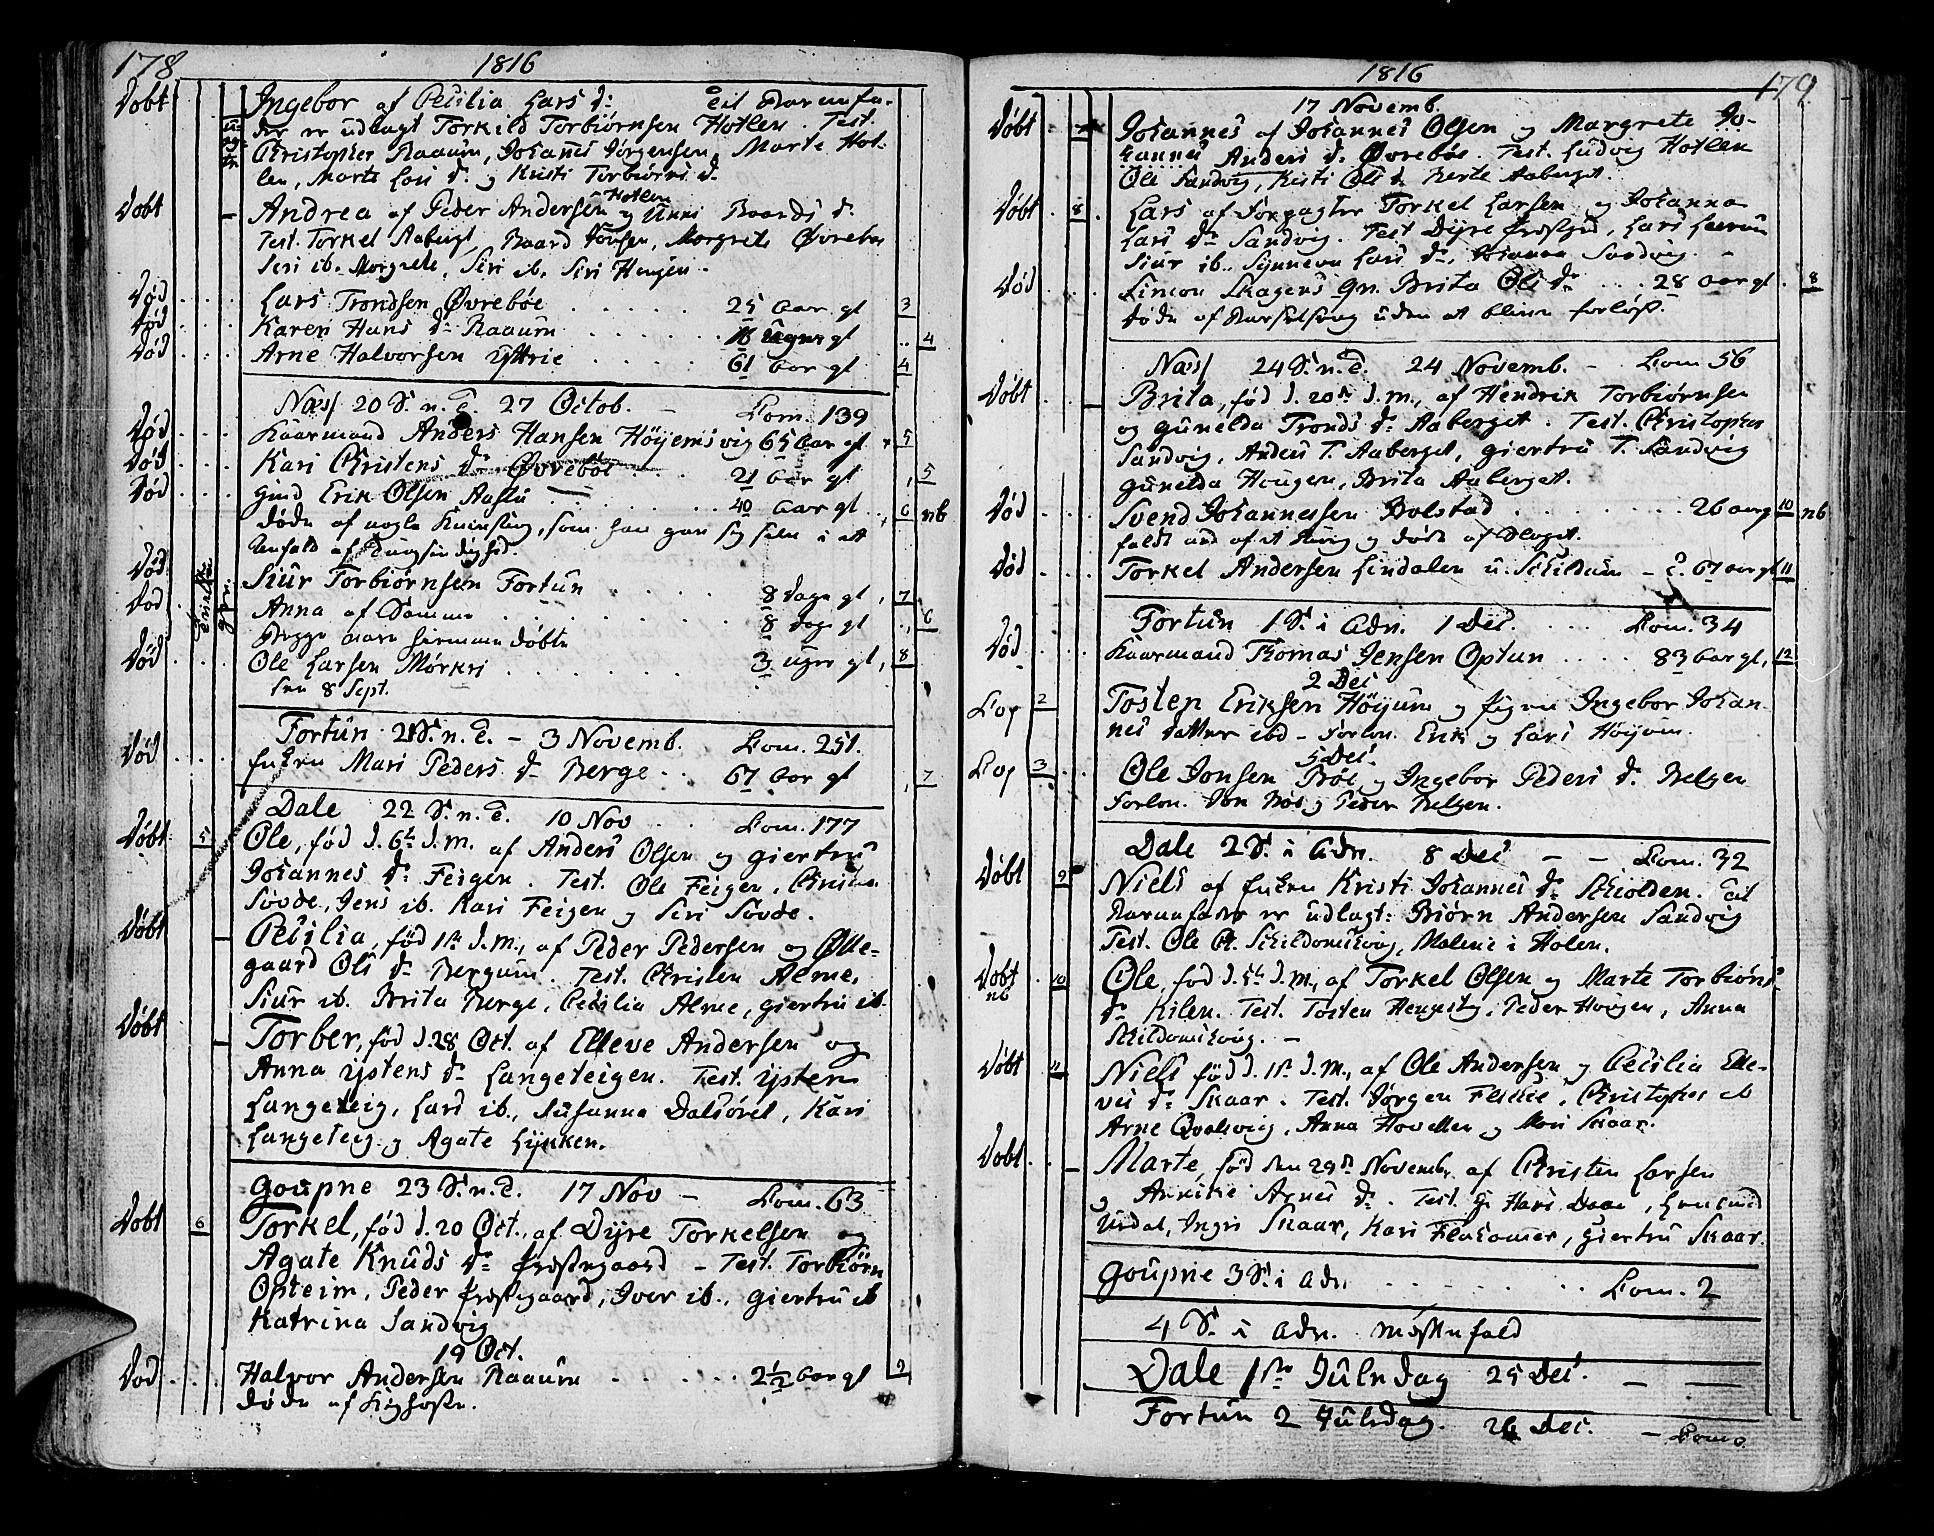 178
1816
Døbt Ingebor af Cecilia Lars d. Til Barnefa-
der er udlagt Torkild Torbiørnsen Hotlen. Test.
Christopher Raaum, Johannes Jørgensen, Marte Hot-
len, Marte Lars d. og Kristi Torbiørns d.
Døbt Andrea af Peder Andersen Hotlen og Unni Baards d.
Test. Torkel Aaberget, Baard Jonsen, Morgrete Øvrebøe
Siri ib. Morgrete, Siri ib. Siri Hougen.
Død Lars Trondsen Øvrebøe 25 Aar gl 3
Død Karen Hans d. Raaum 16 Uger gl 4
Død Arne Halvorsen Ystrie 61 Aar gl 4
Næss 20 S. n. T. 27 Octob. Com. 139
Død Kaarmand Anders Hansen Höyemsvig 65 Aar gl 5
Død Kari Christens d. Øvrebøe 21 Aar gl 5
Død Gmd Erik Olsen Aaslu 40 Aar gl 6 nb
døde af nogle Knivsting, som han gav sig selv i et
Anfald af Tungsindighed.
Død Siur Torbiørnsen Fortun 8 Dage gl 7
Død Anna af Samme 8 Dage gl 6
Begge vare hiemme døbte
Død Ole Larsen Mørkri 3 Uger gl 8
den 8 Sept.
Fortun 21 S. n. T. - 3 Novemb. Com. 251.
Død Enken Mari Peders d. Berge 67 Aar gl 7
Dale 22 S. n. T. 10 Nov Com. 177
Døbt 5 Ole, fød d. 6t d. m. af Anders Olsen og Giertru
Johannes d. Feigen. Test. Ole Feigen,
Søvde, Jens ib. Kari Feigen og Siri Søvde.
Døbt Cecilia, fød 1st d. m., af Peder Pedersen og Olle-
gaard Ols d. Bergum. Test. Christen Alme,
Siur ib. Brita Berge, Cecilia Alme, Giertru ib.
Døbt Torber, fød d. 28 Oct. af Elleve Andersen og
Anna Ystens d. Langeteigen. Test. Ysten
Langeteig, Lars ib., Susanna Dalsøret, Kari
Langeteig og Agate Lynken.
Goupne 23 S. n. T. 17 Nov - Com. 63
Døbt 6 Torkel, fød d. 20 Oct., af Dyre Torkelsen og
Agate Knuds d. Præstegaard - Test. Torbiørn
Opheim, Peder Præstegaard, Iver ib., Giertru ib
Katrina Sandvig
19 Oct.
Død Halvor Andersen Raaum 2 1/2 Aar gl 2
døde af Kighoste.
1816
179
17 Novemb.
Døbt 7 Johannes af Johannes Olsen og Margrete Jo-
hannes Anders d. Øvrebøe. Test. Ludvig Hotlen
Ole Sandvig, Kisti Ols d. Berte Aaberget.
Døbt 8 Lars af Forpagter Torkel Larsen og Johanna
Lars d. Sandvig. Test Dyre Præstgrd, Lars Leerum
Siur ib., Synneva Lars d., Johanna Sandvig.
Død Simon Skagens Qn. Brita Ols d. 28 Aar gl. 8
døde af Barselseng uden at blive forløst.
Næss 24 S. n. T. 24 Novemb. - Com 56
Døbt Brita, fød d. 20de d. m., af Hendrik Torbiørnsen
og Gunelda Tronds d. Aaberget. Test. Christopher
Sandvig, Anders T. Aaberget, Giertru T. Sandvig
Gunelda Hougen, Brita Aaberget.
Død Svend Johannessen Bolstad 26 aar gl 10 nb
faldt ned af et Berg og døde af Slaget.
Død Torkel Andersen Lindalen u. Skildum - 67 aar gl 11
Fortun 1 S. i Adv. 1 Dec. Com. 34
Død Kaarmand Thomas Jensen Optun 83 Aar gl, 12
2 Dec
Cop 2 Tosten Eriksen Höyum og Pigen Ingebor Johan-
nes datter ibd - Forlov. Erik og Lars Höyum.
5 Dec.
Cop 3 Ole Jonsen Bøe og Ingebor Peders d. Bolgen
Forlov. Jon Bøe og Peder Bolgen.
Dale 2 S. i Adv. 8 Dec - - Com. 32
Døbt 9 Niels af Enken Kristi Johannes d. Skiolden. Til
Barnefader er udlagt: Biørn Andersen Sandvig
Test. Ole Skildomshoug, Malene i Holen.
Døbt nb 10 Ole, fød d. 5t d. m., af Torkel Olsen og Marte Torbiørns
d. Kilen. Test. Tosten Heugstg, Peder Hougen, Anna
Skildomshoug. -
Døbt 11 Niels fød d. 1st d. m., af Ole Andersen og Cecilia Elle-
ves d. Skaar. Test. Jørgen Christopher ib
Arne Qvalevig, Anna Hovellen og Mari Skaar.
Døbt Marte, fød den 29de Novembr. af Christen Larsen
og Annikie Arnes d. Test. Hans Daae,
Urdal, Ingri Skaar, Kari Flahamer, Giertru Skaar.
Goupne 3 S. i Adv. Com. 2
4 S. i Adv. messefald
Dale 1ste Juledag 25 Dec. - -
Fortun 2 Juledag. 26 Dec. - Com 0